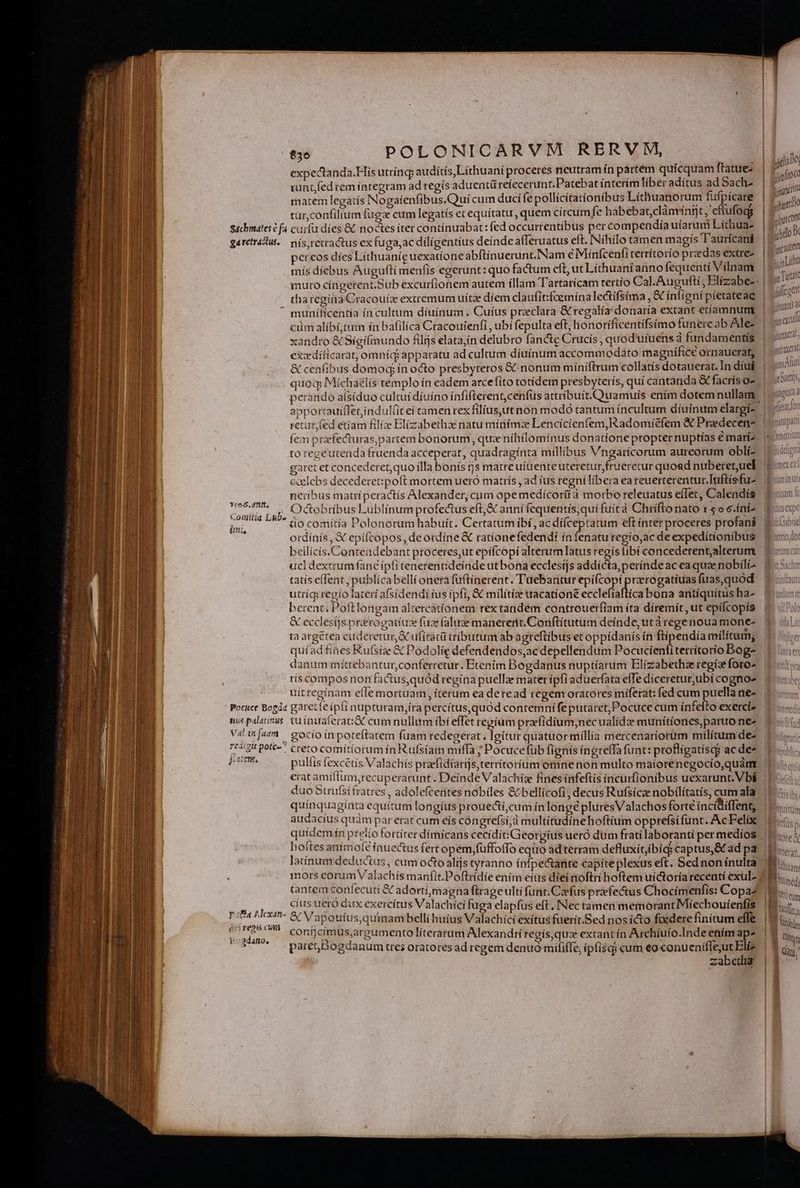 830 POLONICARVM RERVM,
expectanda. His utrinq; auditis, Lithuani proceres neutram in partem quicquam statue-
runt, sed rem integram ad regis aduentũ reiecerunt. Patebat interim liber aditus ad Sach-
matem legatis Nogaiensibus. Qui cum duci se pollicitationibus Lithuanorum suspicare
tur, consilium fugæ cum legatis et equitatu, quem circum se habebat, clàm inijt, effusoq;
Sachmates è fu cursu dies & noctes iter continuabat: sed occurrentibus per compendia uiarum Lithua-
ga retractus. nis, retractus ex fuga, ac diligentius deinde asseruatus est. Nihilo tamen magis Tauricani
per eos dies Lithuaniæ uexatione abstinuerunt. Nam è Minscensi territorio prædas extre-
mis diebus Augusti mensis egerunt: quo factum est, ut Lithuani anno sequenti Vilnam
muro cingerent. Sub excursionem autem illam Tartaricam tertio Cal. Augusti, Elizabe-
tha regina Cracouiæ extremum uitæ diem clausit: fœmina lectissima, & insigni pietate ac
munificentia in cultum diuinum. Cuius præclara & regalia donaria extant etiamnum
cùm alibi, tum in basilica Cracouiensi, ubi sepulta est, honorificentissimo funere ab Ale-
xandro & Sigismundo filijs elata, in delubro sanctæ Crucis, quod uiuens à fundamentis
exædificarat, omniq; apparatu ad cultum diuinum accommodato magnificè ornauerat,
& censibus domoq; in octo presbyteros & nonum ministrum collatis dotauerat. In diui
quoq; Michaëlis templo in eadem arce sito totidem presbyteris, qui cantanda & sacris o-
perando assiduo cultui diuino insisterent, census attribuit. Quamuis enim dotem nullam
apportauisset, indulsit ei tamen rex filius, ut non modò tantum in cultum diuinum elargi-
retur, sed etiam filiæ Elizabethæ natu minimæ Lenciciensem, Radomiësem & Prædecen-
sem præfecturas, partem bonorum, quæ nihilominus donatione propter nuptias è mari-
to rege utenda fruenda acceperat, quadraginta millibus Vngaricorum aureorum obli-
garet et concederet, quo illa bonis ijs matre uiuente uteretur, frueretur quoad nuberet, uel
cælebs decederet: post mortem uerò matris, ad ius regni libera ea reuerterentur. Iustis fu-
neribus matri peractis Alexander, cum ope medicorũ à morbo releuatus esset, Calendis
1506. ann. Octobribus Lublinum profectus est, & anni sequentis, qui fuit à Christo nato 1506. ini-
Comitia Lub- tio comitia Polonorum habuit. Certatum ibi, ac disceptatum est inter proceres profani
lini. ordinis, & episcopos, de ordine & ratione sedendi in senatu regio, ac de expeditionibus
bellicis. Contendebant proceres, ut episcopi alterum latus regis sibi concederent, alterum
uel dextrum sanè ipsi tenerent: deinde ut bona ecclesijs addicta, perinde ac ea quæ nobili-
tatis essent, publica belli onera sustinerent. Tuebantur episcopi prærogatiuas suas, quòd
utriq; regio lateri assidendi ius ipsi, & militiæ uacatione ecclesiastica bona antiquitus ha-
berent. Post longam altercationem rex tandem controuersiam ita diremit, ut episcopis
& ecclesijs prærogatiuæ suæ saluæ manerent. Constitutum deinde, ut à rege noua mone-
ta argẽtea cuderetur, & usitatũ tributum ab agrestibus et oppidanis in stipendia militum,
qui ad fines Russiæ & Podoliæ defendendos, ac depellendum Pocuciensi territorio Bog-
danum mitterebantur, conferretur. Etenim Bogdanus nuptiarum Elizabethæ regiæ soro-
ris compos non factus, quòd regina puellæ mater ipsi aduersata esse diceretur, ubi cogno-
uit reginam esse mortuam, iterum ea de re ad regem oratores miserat: sed cum puella ne-
Pocuce Bogda garet se ipsi nupturam, ira percitus, quòd contemni se putaret, Pocuce cum infesto exerci-
nus palatinus tu inuaserat: & cum nullum ibi esset regium præsidium, nec ualidæ munitiones, paruo ne-
Val. in suam gocio in potestatem suam redegerat. Igitur quatuor millia mercenariorum militum de-
redigit pote- creto comitiorum in Russiam missa, Pocuce sub signis ingressa sunt: profligatisq; ac de-
statem. pulsis sexcetis Valachis præsidiarijs, territorium omne non multo maiore negocio, quàm
erat amissum, recuperarunt. Deinde Valachiæ fines infestis incursionibus uexarunt. Vbi
duo Strussi fratres, adolescentes nobiles & bellicosi, decus Russicæ nobilitatis, cum ala
quinquaginta equitum longius prouecti, cum in longè plures Valachos fortè incidissent,
audacius quàm par erat cum eis congressi, à multitudine hostium oppressi sunt. Ac Felix
quidem in prelio fortiter dimicans cecidit: Georgius uerò dum frati laboranti per medios
hostes animosè inuectus fert opem, suffosso equo ad terram defluxit, ibiq; captus, & ad pa
latinum deductus, cum octo alijs tyranno inspectante capite plexus est. Sed non inulta
mors eorum Valachis mansit. Postridie enim eius diei nostri hostem uictoria recenti exul-
tantem consecuti & adorti, magna strage ulti sunt. Cæsus præfectus Chocimensis: Copa-
cius uerò dux exercitus Valachici fuga elapsus est. Nec tamen memorant Miechouiensis
Pacta Alexan- & Vapouius, quinam belli huius Valachici exitus fuerit. Sed nos icto fœdere finitum esse
dri regis cum conijcimus, argumento literarum Alexandri regis, quæ extant in Archiuio. Inde enim ap-
Bogdano. paret, Bogdanum tres oratores ad regem denuò misisse, ipsisq; cum eo conuenisse, ut Eli-
zabetha